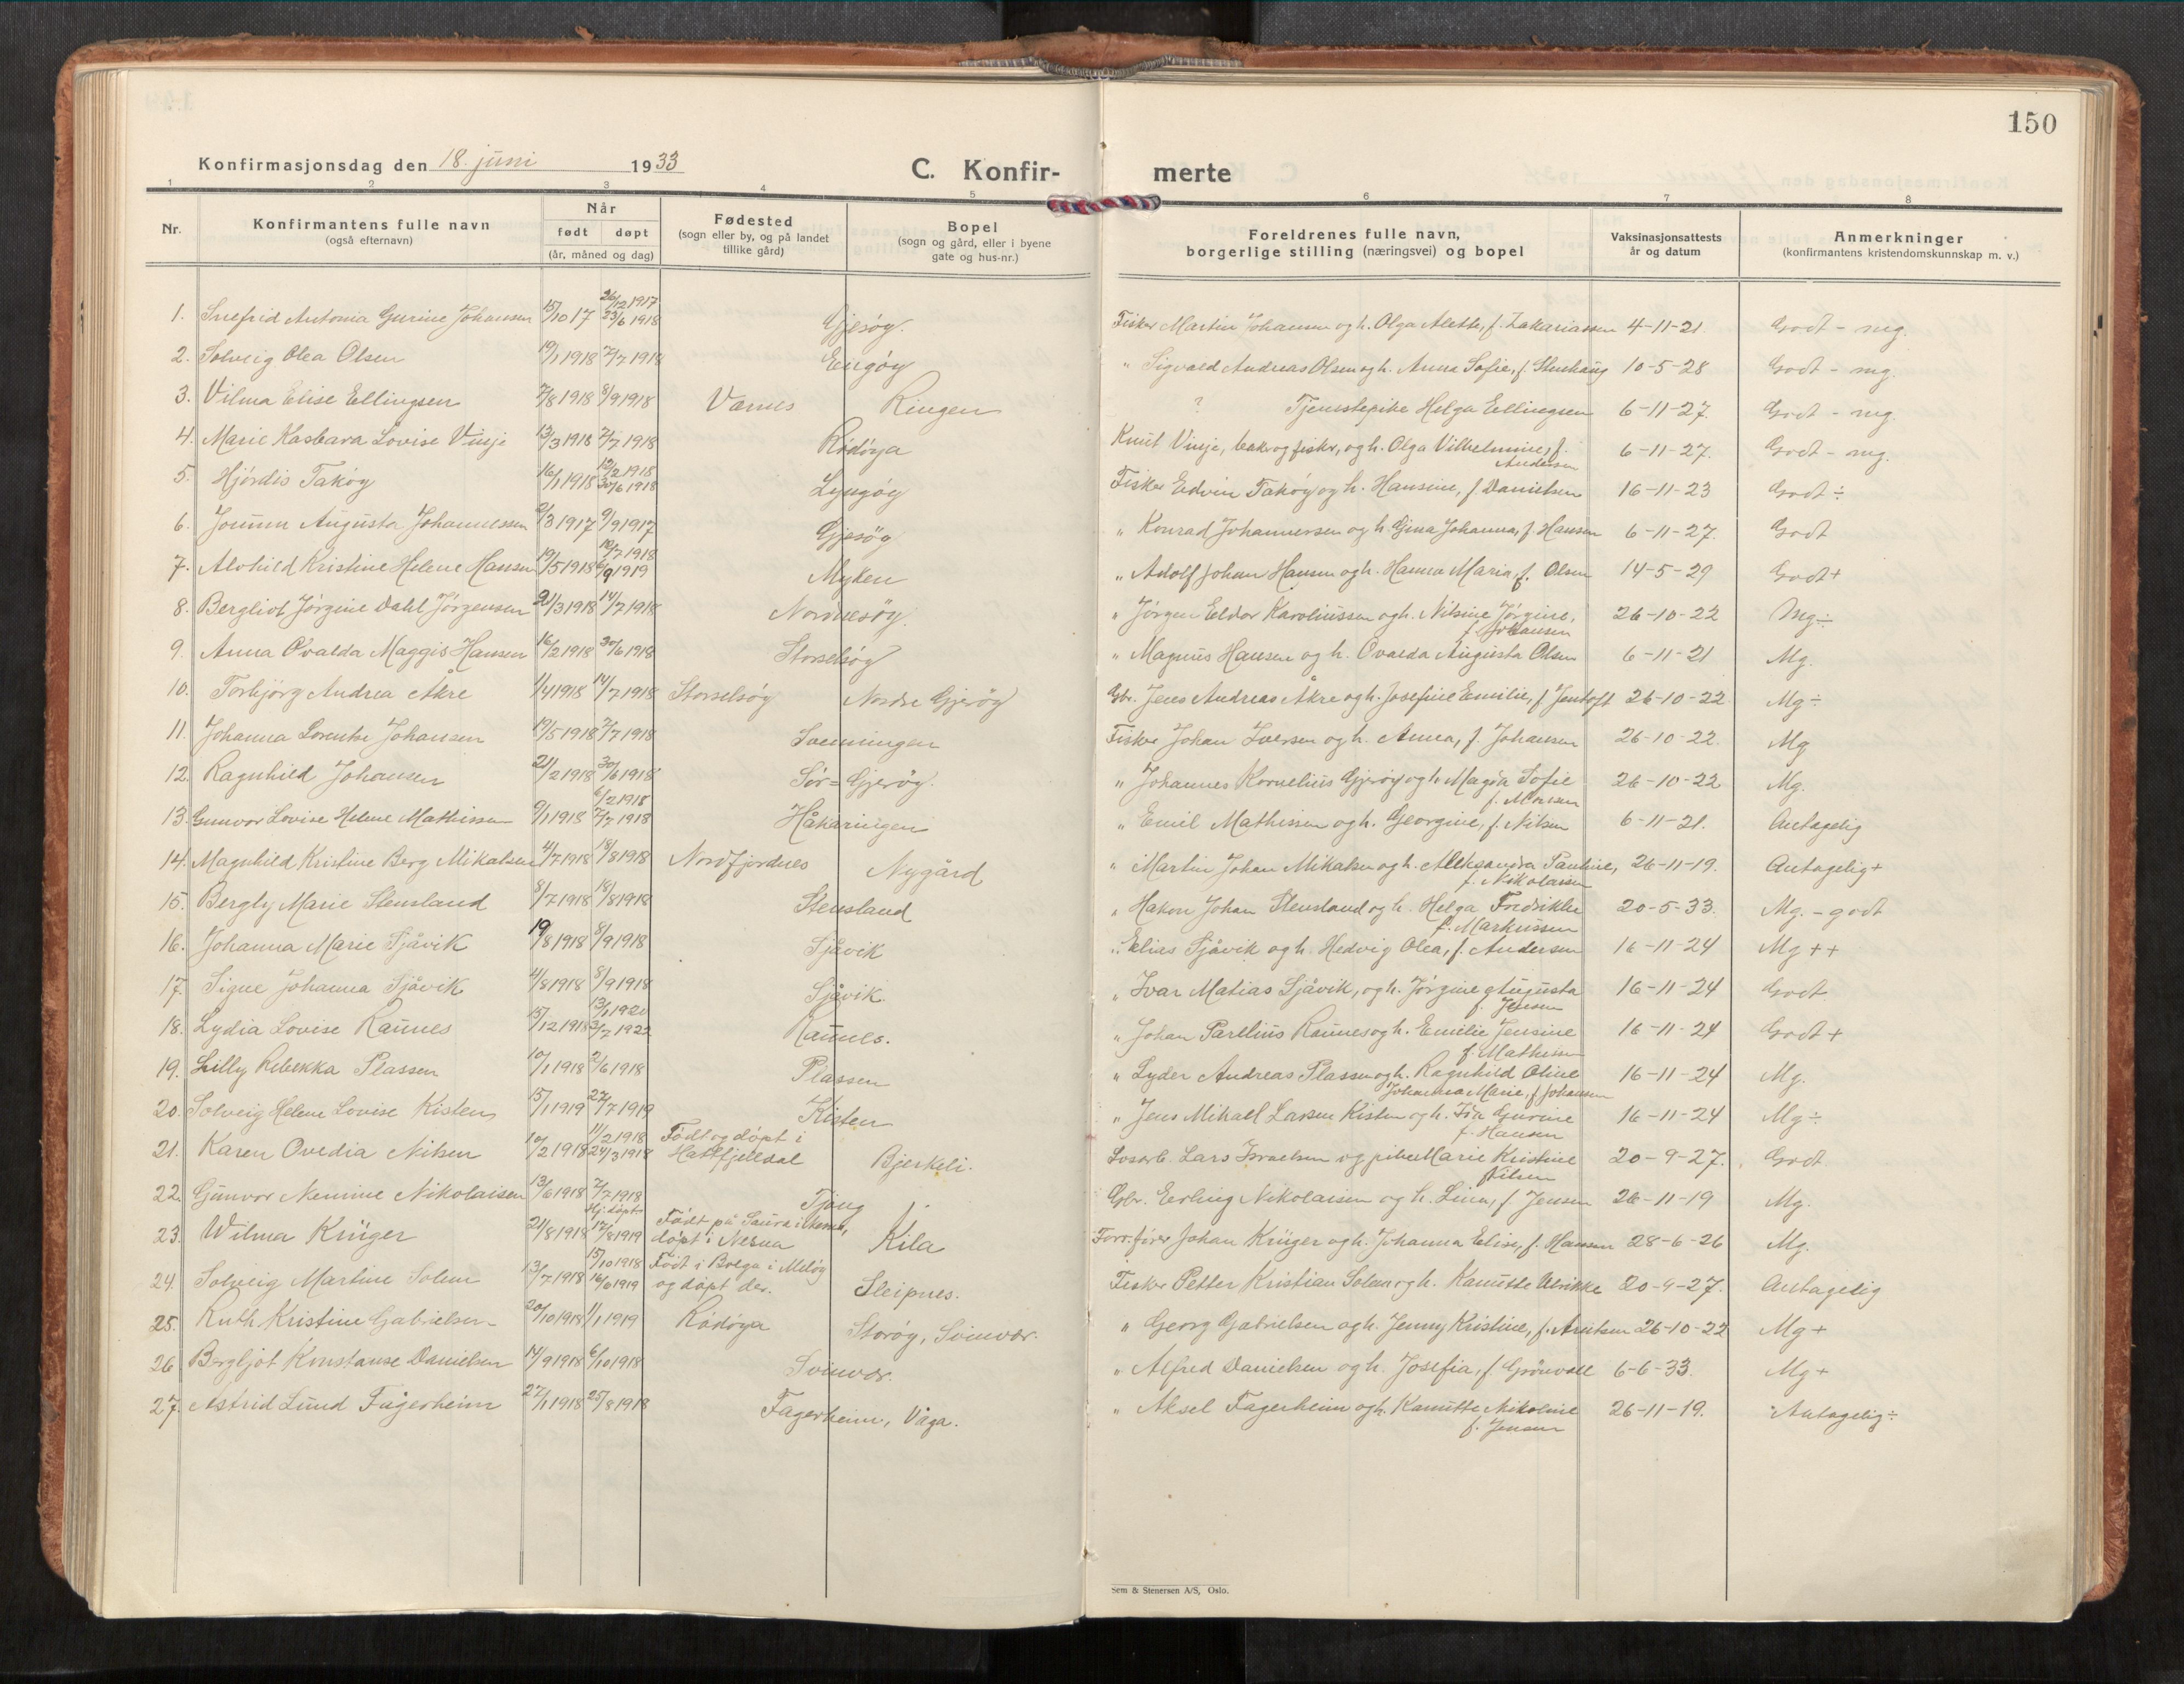 150
Konfirmasjonsdag den 18. juni 1933
C. Konfir- merte
1 2 3 4 5 6 7 8
Nr.
Konfirmantens fulle navn
(også efternavn)
Når
født døpt
(år, måned og dag)
Fødested
(sogn eller by, og på landet
tillike gård)
Bopel
(sogn og gård, eller i byene
gate og hus-nr.)
Foreldrenes fulle navn,
borgerlige stilling (næringsvei) og bopel
Vaksinasjonsattests
år og datum
Anmerkninger
(konfirmantens kristendomskunnskap m. v.)
1. Snefrid Antonia Gurine Johansen 15/10 17 26/12 1917 23/6 1918 Gjesøy. Fisker Martin Johansen og h. Olga Alette, f. Zakariassen 4-11-21 Godt - mg.
2. Solveig Olea Olsen 19/1 1918 7/7 1918 Engøy " Sigvald Andreas Olsen og h. Anna Sofie, f. Stenhaug 10-5-28 Godt - mg.
3. Vilma Elise Ellingsen 7/8 1918 8/9 1918 Værnes Ringen ? Tjenestepike Helga Ellingsen 6-11-27. Godt - mg.
4. Marie Kasbara Lovise Vinje 13/3 1918 7/7 1918 Rødøya Knut Vinje, bak og fisker, og h. Olga Vilhelmine, f. Andersen 6-11-27. Godt - mg.
5. Hjørdis Takøy 16/1 1918 12/2 1918 30/6 1918 Lyngøy Fisker Edvin Takøy og h. Hansine, f. Danielsen 16-11-23 Godt ÷
6. Jorunn Augusta Johannessen 2/3 1917 9/9 1917 Gjesöy " Konrad Johannersen og h. Gina Johanna, f. Hansen 6-11-27. Godt
7. Alvhild Kristine Helene Hansen 19/5 1918 10/7 1918 6/9 1919 Myken " Adolf Johan Hansen og h. Hanna Maria, f. Olsen 14-5-29 Godt +
8. Bergliot Jørgine Dahl Jørgensen 21/3 1918 14/7 1918 Nordnesøy. " Jørgen Eldor Karoliussen og h. Nilsine Jørgine, f. Johansen 26-10-22 Mg ÷
9. Anna Ovalda Maggis Hansen 16/2 1918 30/6 1918 Storselsøy " Magnus Hansen og h. Ovalda Augusta Olsen 6-11-21 Mg.
10. Torbjörg Andrea Åkre 1/4 1918 14/7 1918 Storselsøy Nordre Gjerøy Gbr. Jens Andreas Åkre og h. Josefine Emilie, f. Jentoft 26-10-22 Mg ÷
11. Johanna Lorentse Johansen 19/5 1918 7/7 1918 Svenningen Fisker Johan Iversen og h. Anna, f. Johansen 26-10-22. Mg
12. Ragnhild Johansen 21/2 1918 30/6 1918 Sør=Gjerøy. " Johannes Kornelius Gjerøy og h. Magda Sofie f. Monsen 26-10-22 Mg.
13. Gunvor Lovise Helene Mathissen 9/1 1918 6/2 1918 7/7 1918 Håkaringen " Emil Mathissen og h. Georgine, f. Nilsen 6-11-21. Antagelig
14. Magnhild Kristine Berg Mikalsen 4/7 1918 18/8 1918 Nordfjordnes Nygård " Martin Johan Mikalsen og h. Aleksandra Pauline, f. Nikolaisen 26-11-19. Antagelig +
15. Bergly Marie Stensland 8/7 1918 18/8 1918 Stensland " Hakon Johan Stensland og h. Helga Fredrikke f. Markussen 20-5-33. Mg. - godt
16. Johanna Marie Sjåvik 19/8 1918 8/9 1918 Sjåvik " Elias Sjåvik og h. Hedvig Olea, f. Andersen 16-11-24 Mg ++
17. Signe Johanna Sjåvik 4/8 1918 8/9 1918 Sjåvik. " Ivar Matias Sjåvik, og h. Jørgine Augusta f. Jensen 16-11-24 Godt
18. Lydia Lovise Raunes 15/12 1918 13/1 1920 2/7 1922 Raunes. " Johan Parelius Raunes og h. Emilie Jensine f. Mathisen 16-11-24 Godt +
19. Lilly Rebekka Plassen 10/1 1918 2/6 1918 Plassen " Lyder Andreas Plassen og h. Ragnhild Oline Johanna Marie, f. Johansen 16-11-24 Mg.
20. Solveig Helene Lovise Kisten 15/1 1919 27/7 1919 Kisten " Jens Mikael Larsen Kisten og h. Ida Gurine f. Hansen 16-11-24 Mg ÷
21. Karen Ovedia Nilsen 10/2 1918 11/2 1918 24/3 1918 Født og døpt i Hattfjelldal Bjerkeli. Losarb. Lars Israelsen og pike Marie Kristine Nilsen 20-9-27. Godt
22. Gunvor Nennine Nikolaisen 13/6 1918 7/7 1918 Tjong Gbr. Erling Nikolaisen og h. Lina, f. Jensen 26-11-19 Mg.
23. Wilma Krüger 21/8 1918 Hj. døpt 17/8 1919 Født på Saura i Nesna, døpt i Nesna Kila Forr.fører Johan Krüger og h. Johanna Elise, f. Hansen 28-6-26 Mg.
24. Solveig Martine Solem 13/7 1918 15/10 1918 16/6 1919 Født i Bolga i Meløy og døpt der. Sleipnes. Fisker Petter Kristian Solem og h. Kanutte Ulrikke 20-9-27. Antagelig
25. Ruth Kristine Gabrielsen 20/10 1918 1/1 1919 Rødøya Storøy, Svinvær. " Georg Gabrielsen og h. Jenny Kristine, f. Arntsen 26-10-22 Mg +
26 Bergljot Konstanse Danielsen 14/9 1918 6/10 1918 Svinvær. " Alfred Danielsen og h. Josefia, f. Grönvoll 6-6-33. Mg +
27. Astrid Lund Fagerheim 27/1 1918 25/8 1918 Fagerheim, Våga. " Aksel Fagerheim og h. Kanutte Nikoline f. Jensen 26-11-19. Antagelig ÷
Sem & Stenersen A/S, Oslo.